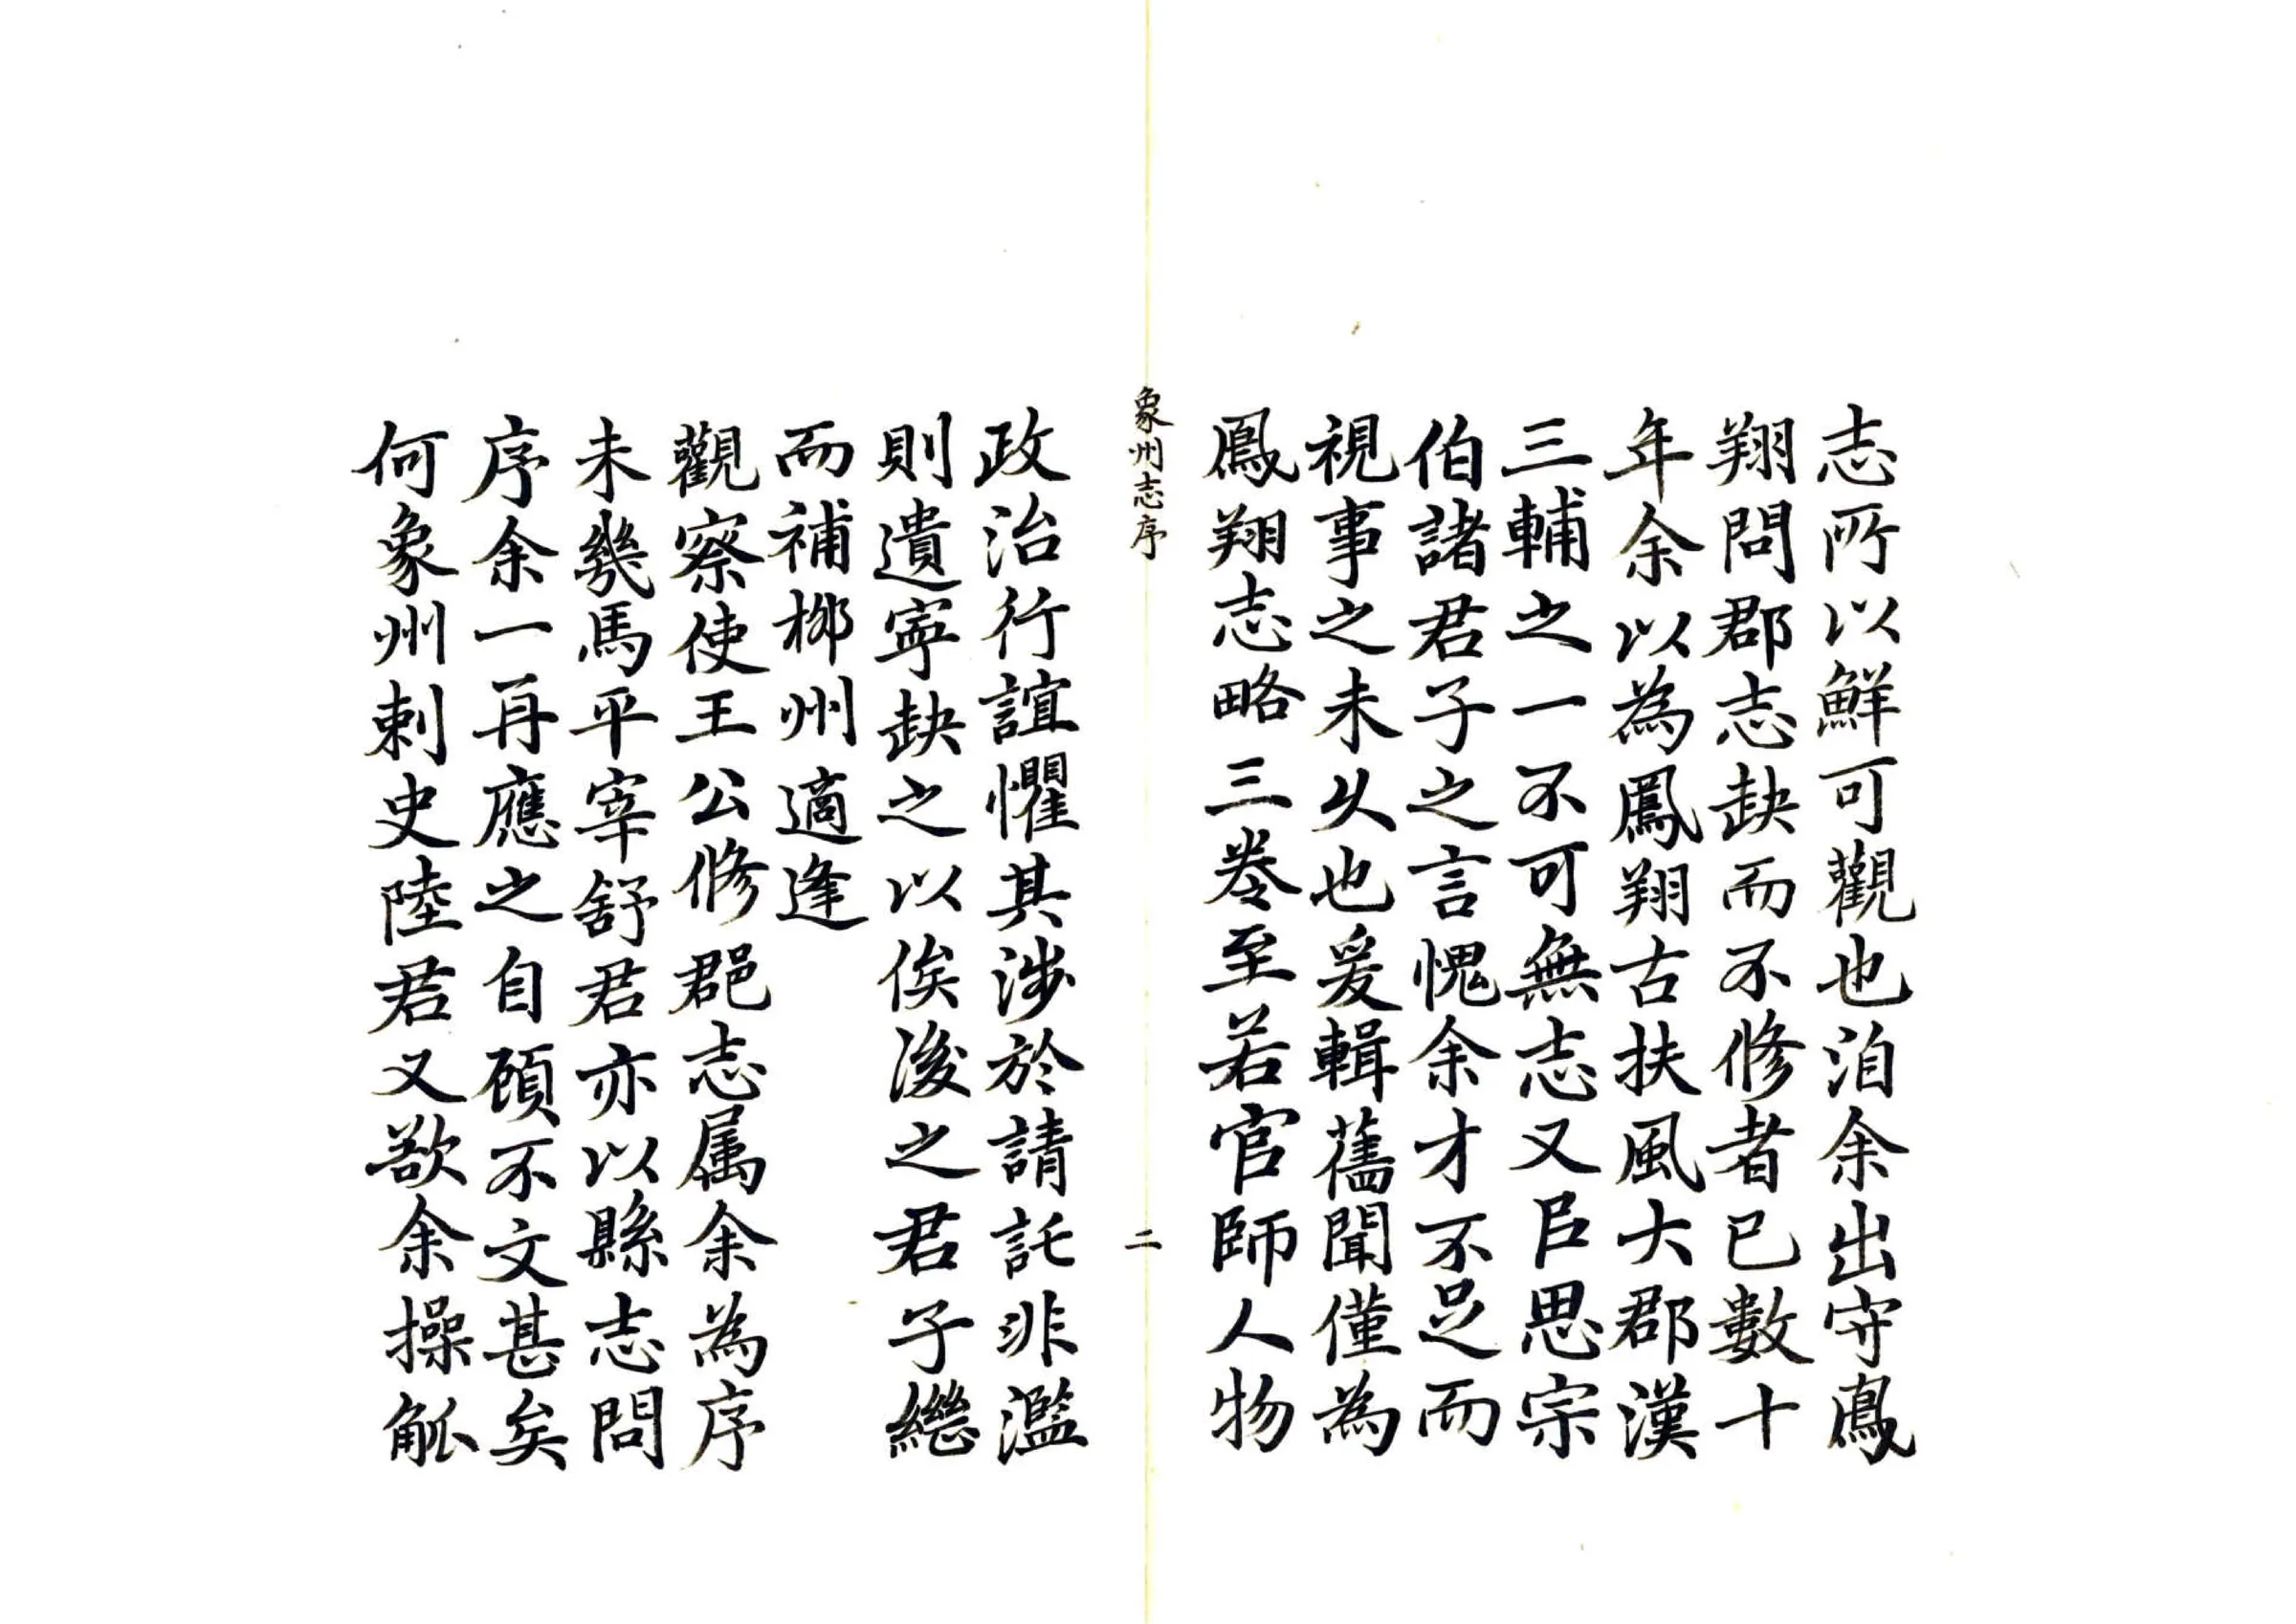 志所以鮮可觀也洎余出守鳳
翔問郡志缺而不修者已數十
年余以為鳳翔古扶風大郡漢
三輔之一不可無志又臣思宗
伯諸君子之言愧余才不足而
視事之未久也爰輯舊聞僅為
鳳翔志略三卷至若官師人物
象州志序
二
政治行誼懼其涉於請託非濫
則遺寧缺之以俟後之君子繼
而補柳州適逢
觀察使王公修郡志属余為序
未幾馬平宰舒君亦以縣志問
序余一再應之自顧不文甚矣
何象州刺史陸君又欲余操觚